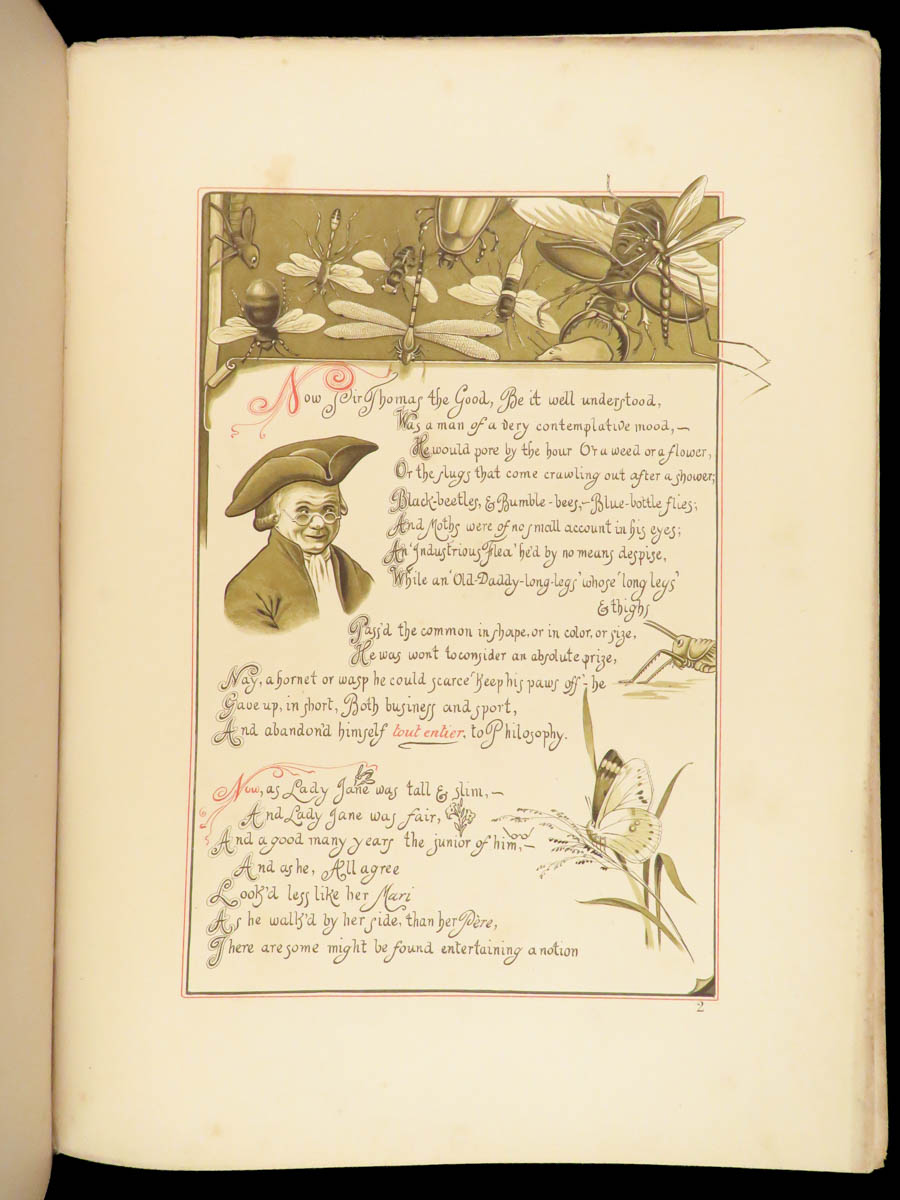 Now Sir Thomas the Good, Be it well understood,
Was a man of a very contemplative mood,—
He would pore by the hour O'r a weed or a flower,
Or the slugs that come crawling out after a shower;
Black-beetles, & Bumble-bees,—Blue-bottle flies;
And Moths were of no small account in his eyes;
An 'Industrious Flea' he'd by no means despise,
While an 'Old-Daddy-long-legs' whose 'long legs'
& thighs
Pass'd the common in shape, or in color, or size,
He was wont to consider an absolute prize,
Nay, a hornet or wasp he could scarce 'keep his paws off'—he
Gave up, in short, Both business and sport,
And abandon'd himself tout entier, to Philosophy.
Now, as Lady Jane was tall & slim,—
And Lady Jane was fair,
And a good many years the junior of him,—
And as he, All agree
Look'd less like her Mari
As he walk'd by her side, than her Père,
There are some might be found entertaining a notion
2